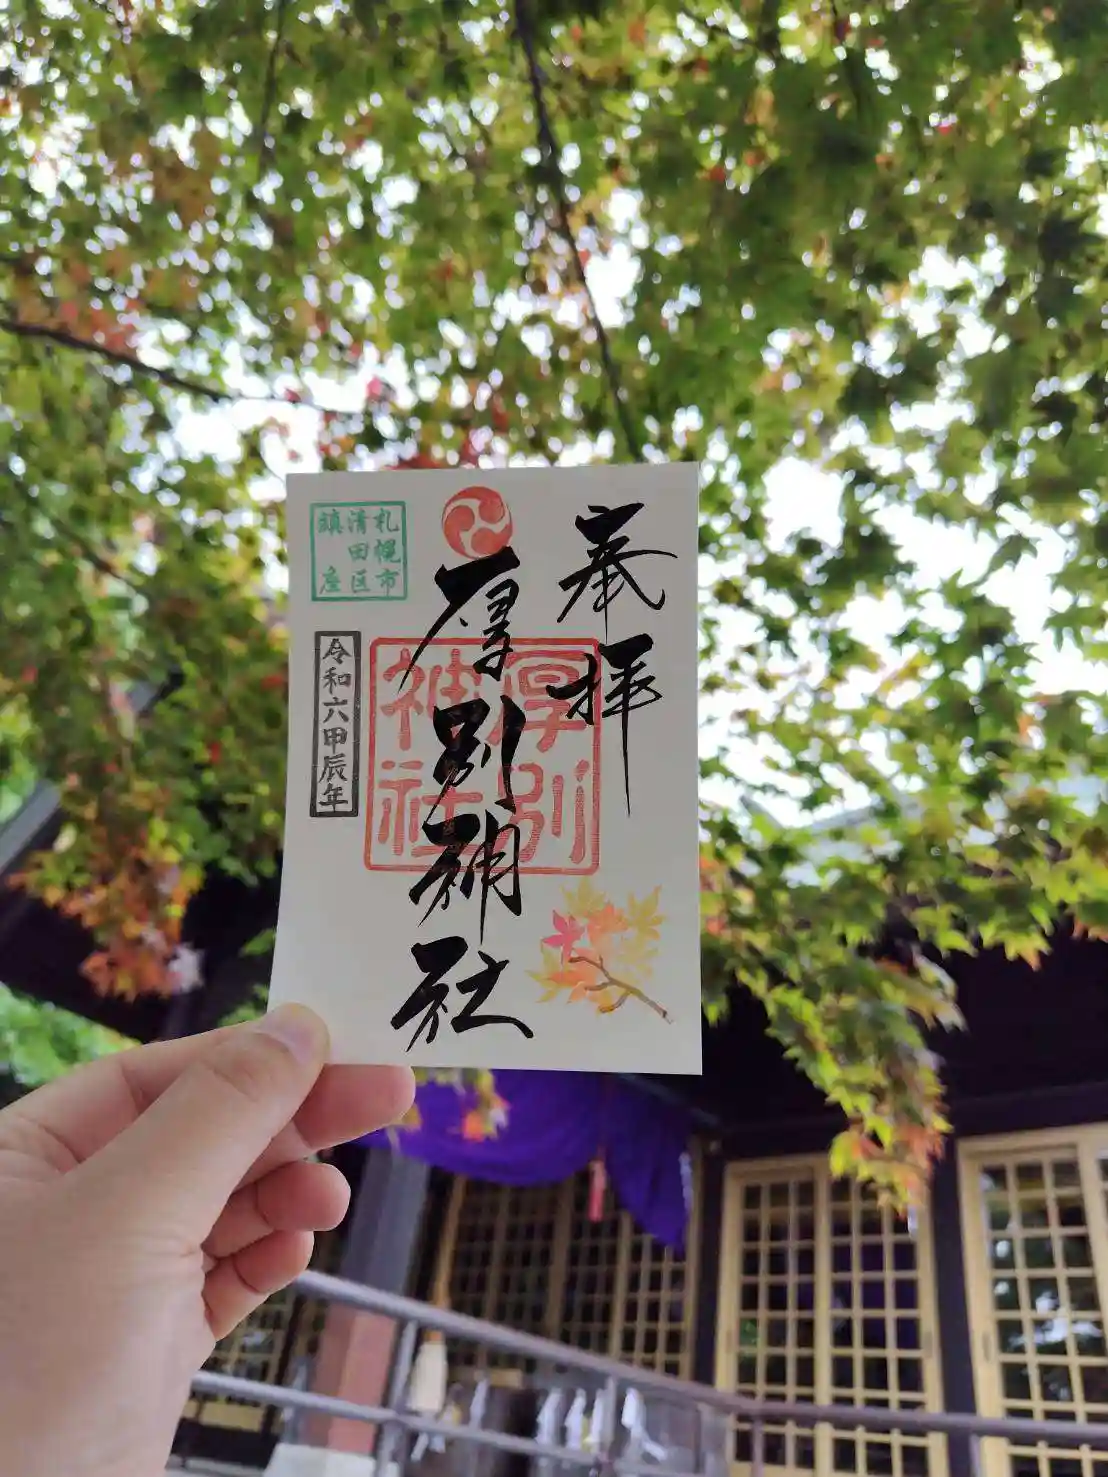 奉拝
厚別神社
厚別
神社
札幌市
清田区
鎮座
令和六甲辰年